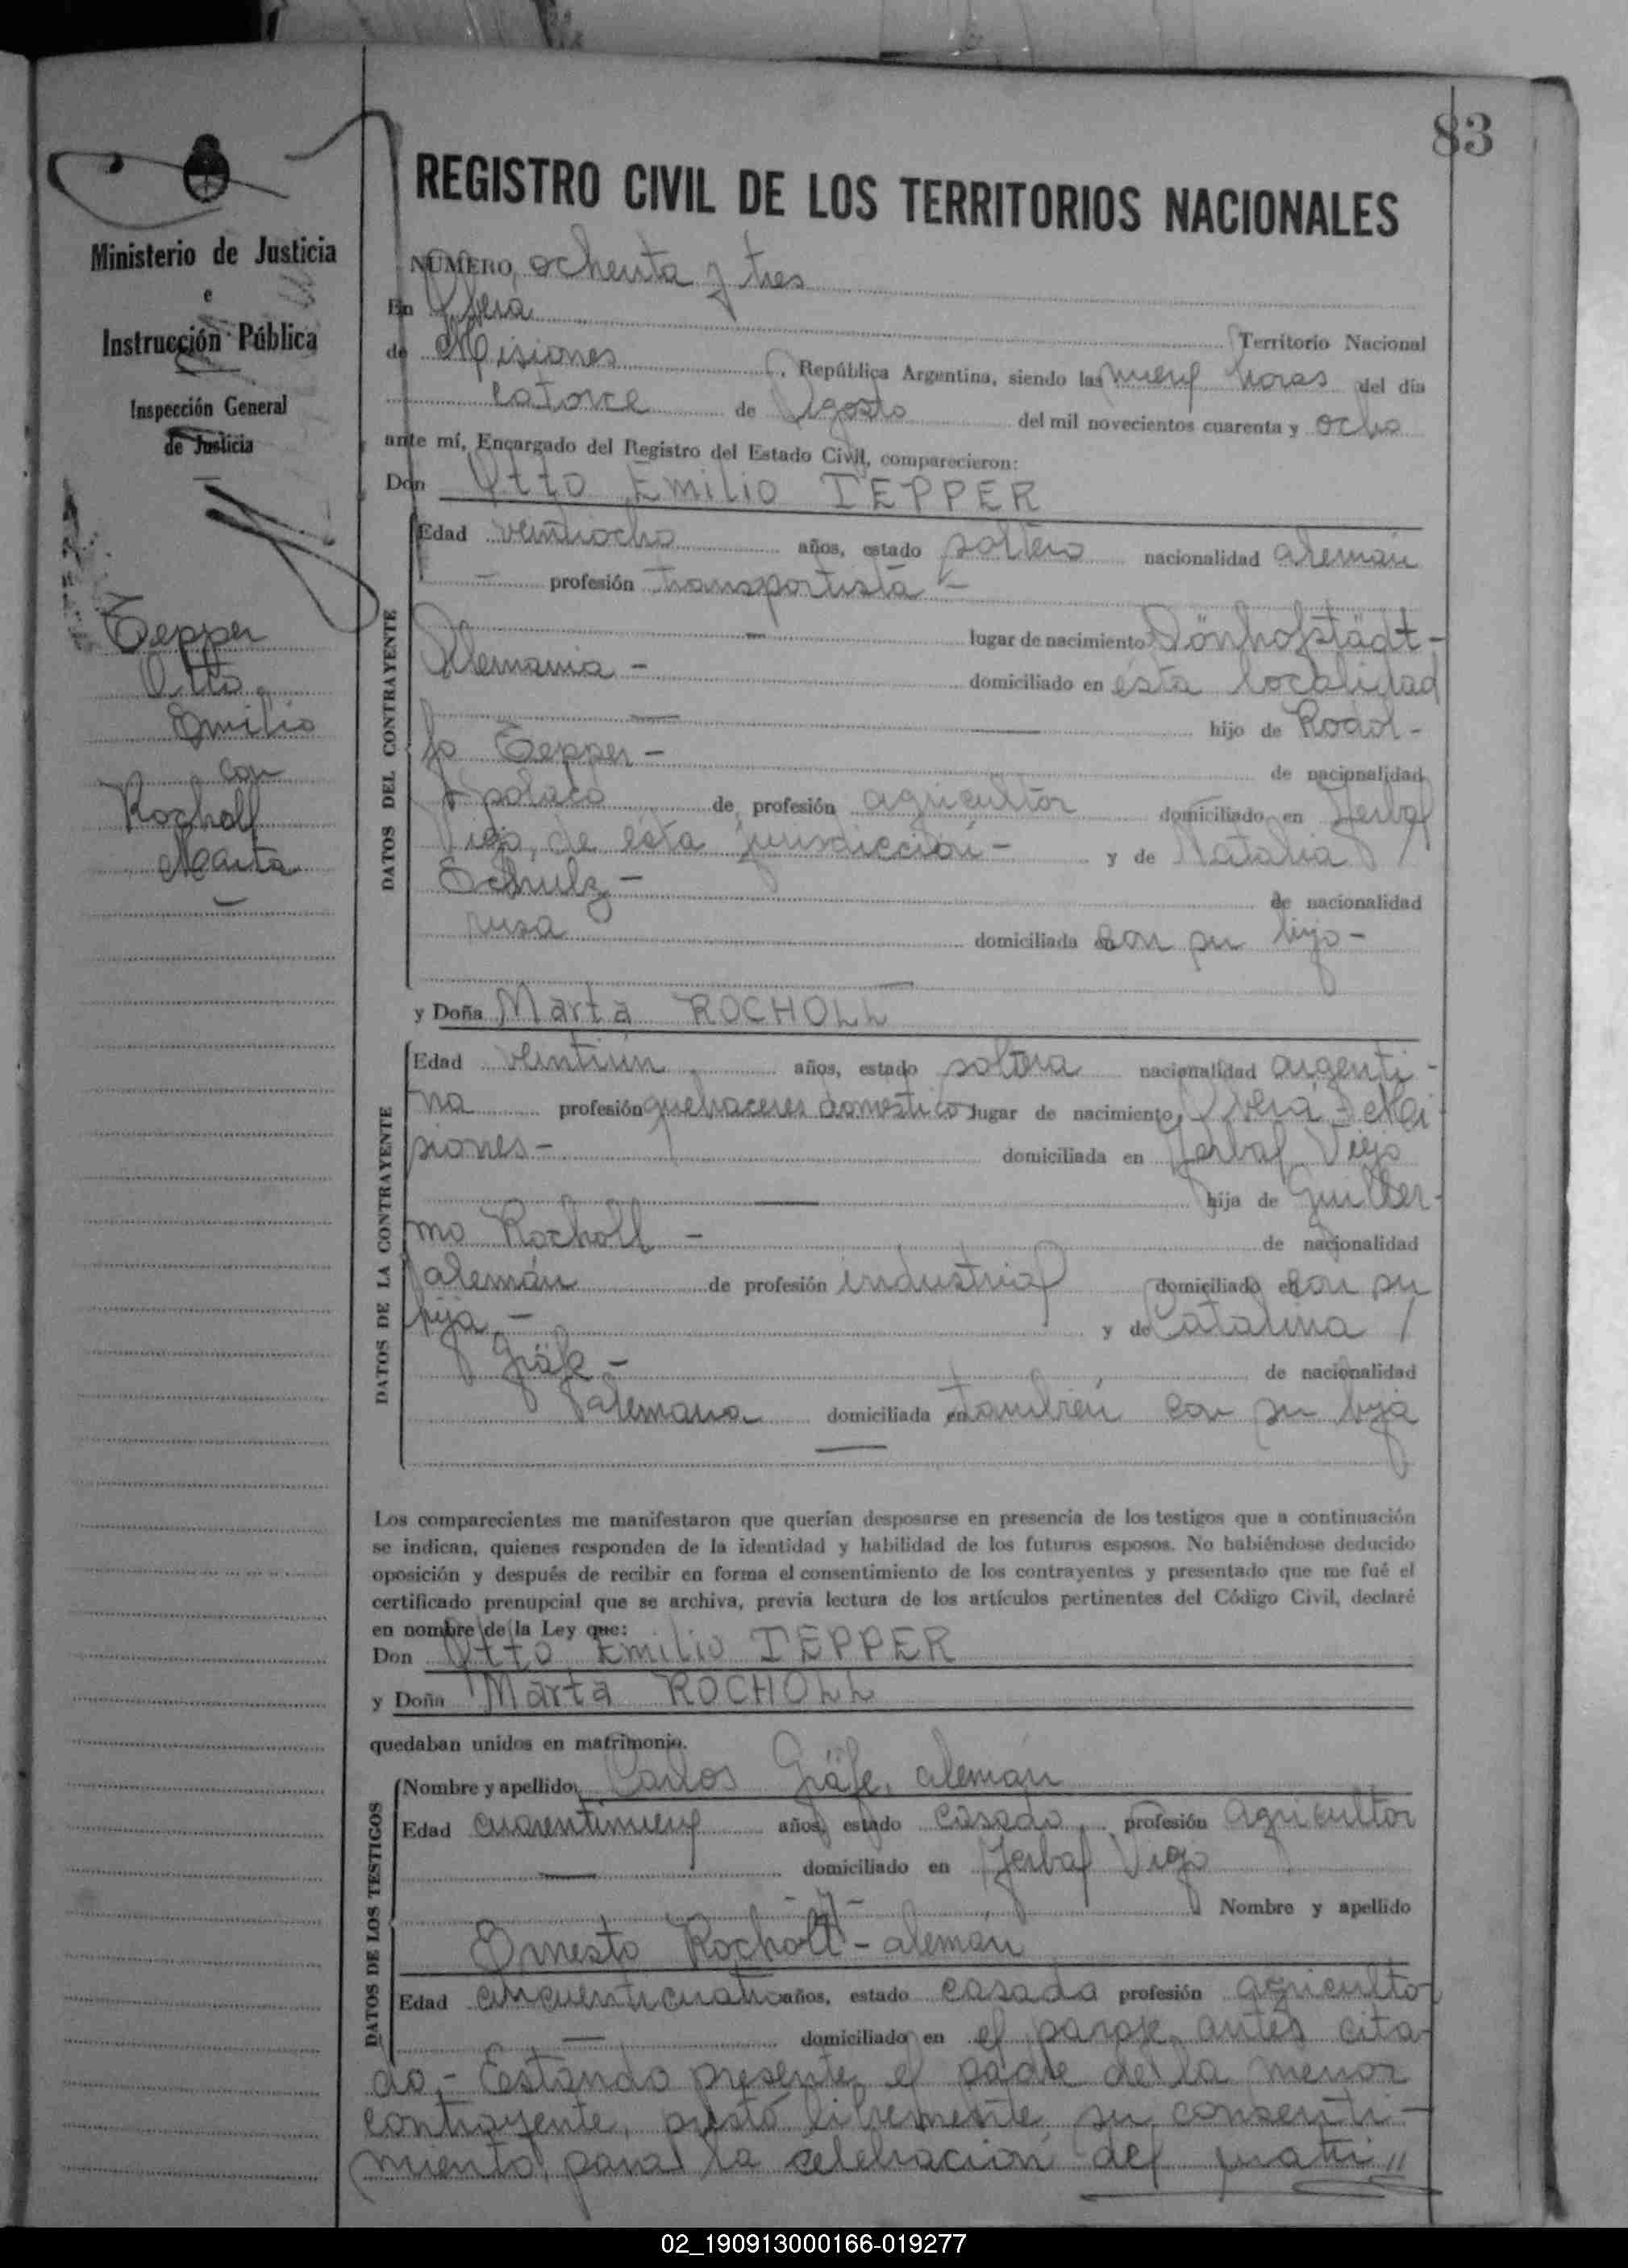 83
Ministerio de Justicia
e
Instrucción Pública
Inspección General
de Justicia
Tepper
Otto
Emilio
con
Rocholl
Marta
REGISTRO CIVIL DE LOS TERRITORIOS NACIONALES
NÚMERO ochenta y tres
En Oberá Territorio Nacional
de Misiones, República Argentina, siendo las nueve horas del día
catorce de Agosto del mil novecientos cuarenta y ocho
ante mí, Encargado del Registro del Estado Civil, comparecieron:
Don Otto Emilio TEPPER
DATOS DEL CONTRAYENTE
Edad veintiocho años, estado soltero nacionalidad alemán
- profesión transportista -
- lugar de nacimiento Dönhofstädt -
Alemania - domiciliado en ésta localidad
hijo de Rodol-
fo Tepper - de nacionalidad
polaco de profesión agricultor domiciliado en Yerbal
Viejo, de ésta jurisdicción - y de Natalia
Schulz - de nacionalidad
rusa domiciliada en con su hijo -
y Doña Marta ROCHOLL
DATOS DE LA CONTRAYENTE
Edad veintiún años, estado soltera nacionalidad argenti-
na profesión quehaceres domésticos lugar de nacimiento Oberá - Mi
siones - domiciliada en Yerbal Viejo
hija de Guiller-
mo Rocholl - de nacionalidad
alemán de profesión industrial domiciliado en con su
hija - y de Catalina
Gräfe - de nacionalidad
alemana domiciliada en también con su hija
Los comparecientes me manifestaron que querían desposarse en presencia de los testigos que a continuación
se indican, quienes responden de la identidad y habilidad de los futuros esposos. No habiéndose deducido
oposición y después de recibir en forma el consentimiento de los contrayentes y presentado que me fué el
certificado prenupcial que se archiva, previa lectura de los artículos pertinentes del Código Civil, declaré
en nombre de la Ley que:
Don Otto Emilio TEPPER
y Doña Marta ROCHOLL
quedaban unidos en matrimonio.
DATOS DE LOS TESTIGOS
Nombre y apellido Carlos Gräfe, alemán
Edad cuarentinueve años, estado casado profesión agricultor
domiciliado en Yerbal Viejo
Nombre y apellido
Ernesto Rocholl - alemán
Edad cincuenticuatro años, estado casado profesión agricultor
domiciliado en el paraje antes cita-
do.- Estando presente el padre de la menor
contrayente, prestó libremente su consenti-
miento para la celebración del matri"
02_190913000166-019277